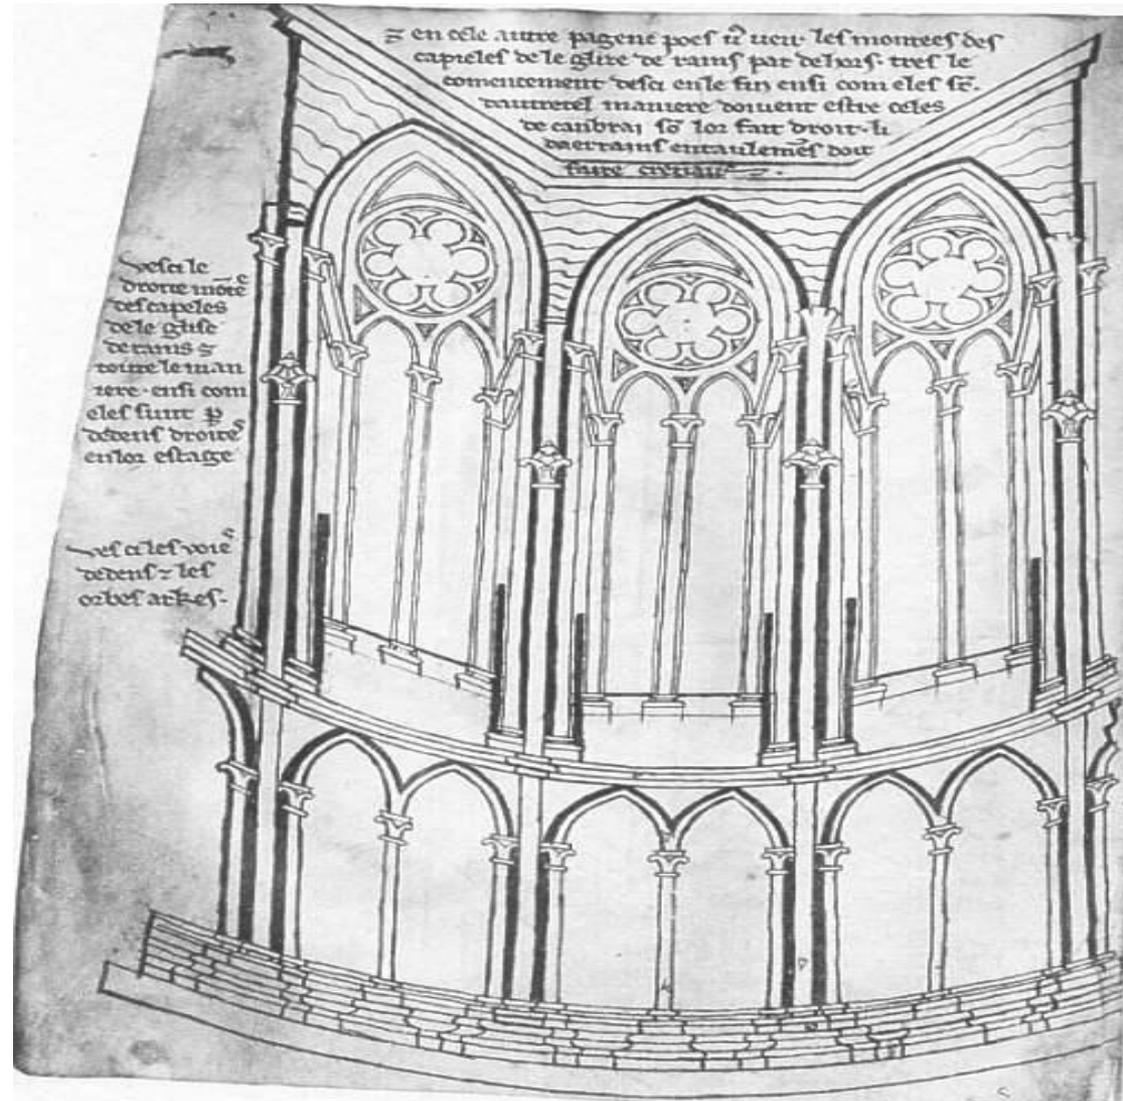 ⁊ en cele autre pagene poes vͦ veir les montees des
capieles de le glize de rains par dehors. tres le
comencement desci en le fin ensi com eles sͭ.
dautretel maniere doivent estre celes
de canbrai sͦ lor fait droit. li
daerrains entaulemēs doit
faire creniaus ⁊.
Vesci le
droite mōteͤ
des capeles
de le glise
de rains ⁊
toute le man
iere. ensi com
eles sunt ꝑ
dedens droiteˢ
en lor estage
Ves ci les voieˢ
dedens ⁊ les
orbes arkes.